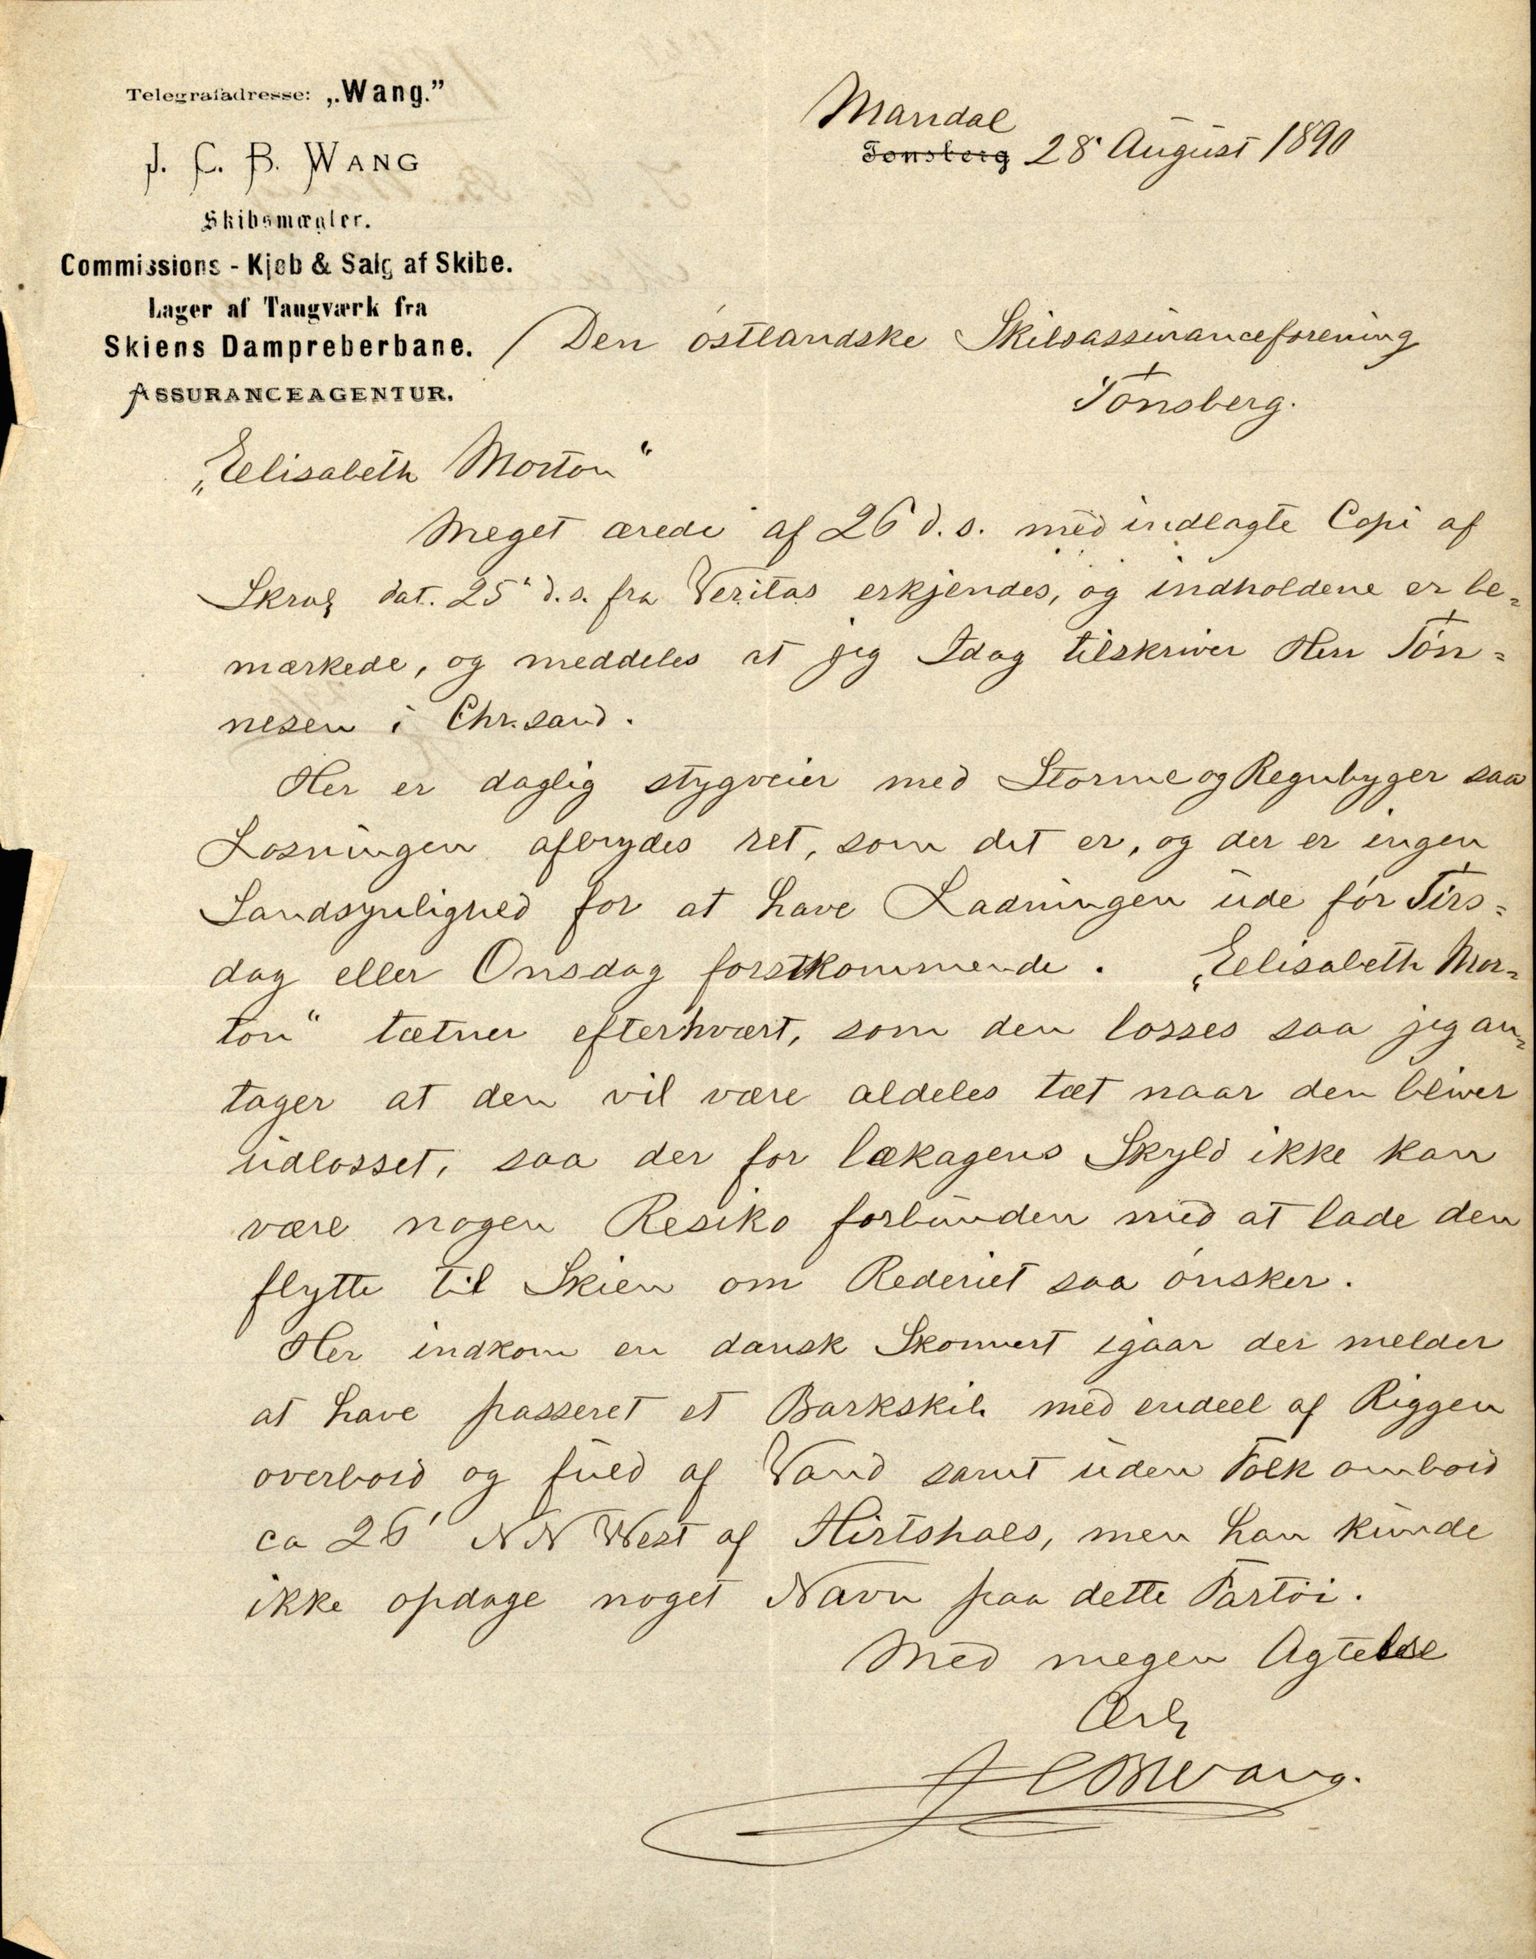 Telegrafadresse: „Wang.”
J. C. B. WANG
Skibsmægler.
Commissions - Kjøb & Salg af Skibe.
Lager af Taugværk fra
Skiens Dampreberbane.
ASSURANCEAGENTUR.
Mandal
Tønsberg 28' August 1890
Den östlandske Skibsassuranceforening
Tönsberg.
„Eelisabeth Morton“
Meget ærede af 26 d.s. med indlagte Copi af
Skrog dat. 25' d.s. fra Veritas erkjendes, og indholdene er be=
mærkede, og meddeles at jeg Idag tilskriver Herr Tön=
nesen i Chr.sand.
Her er daglig stygveier med Storme og Regnbyger saa
Losningen afbrydes ret, som det er, og der er ingen
Sandsynlighed for at have Ladningen ude för Tirs=
dag eller Onsdag førstkommende. „Eelisabeth Mor=
ton“ tætner efterhvært, som den losses saa jeg an=
tager at den vil være aldeles tæt naar den bliver
udlosset, saa der for lækagens Skyld ikke kan
være nogen Resiko forbunden med at lade den
flytte til Skien om Rederiet saa önsker.
Her indkom en dansk Skonnert igaar der melder
at have passeret et Barkskib med endeel af Riggen
overbord og fuld af Vand samt uden Folk ombord
ca 26' NN West af Hirtshals, men han kunde
ikke opdage noget Navn paa dette Fartöi.
Med megen Agtelse
Ærb
JCBWang.